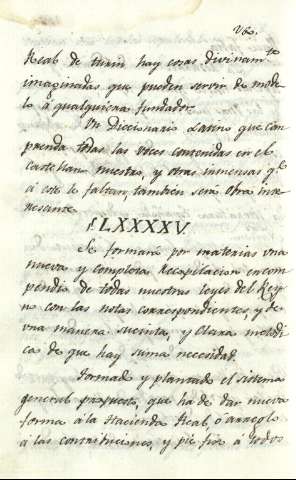 Real de turin hay cosas divinamte
imaginadas que pueden servir de mode-
lo à qualquiera fundador.
Un Diccionario Latino que com
prenda todas las voces contenidas en el
Castellano nuestro, y otras inmensas qe
à este le faltan, tambien será obra
LXXXXV.
Se formará por materias una
nueva y completa Recapilacion en com
pendio de todas nuestras leyes del Rey
no con las notas correspondientes, y de
una manera sucinta, y Clara metodi
ca de que hay suma necesidad.
Formado y planteado el sistema
general propuesto, que ha de dar nueva
forma à la Hacienda Real, ò arreglo
à las contribuciones, y pie fixo à todos